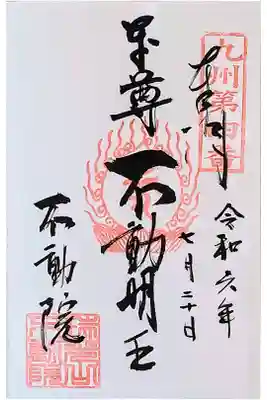 九州第四番
奉拝
令和六年
七月二十日
本尊 不動明王
不動院